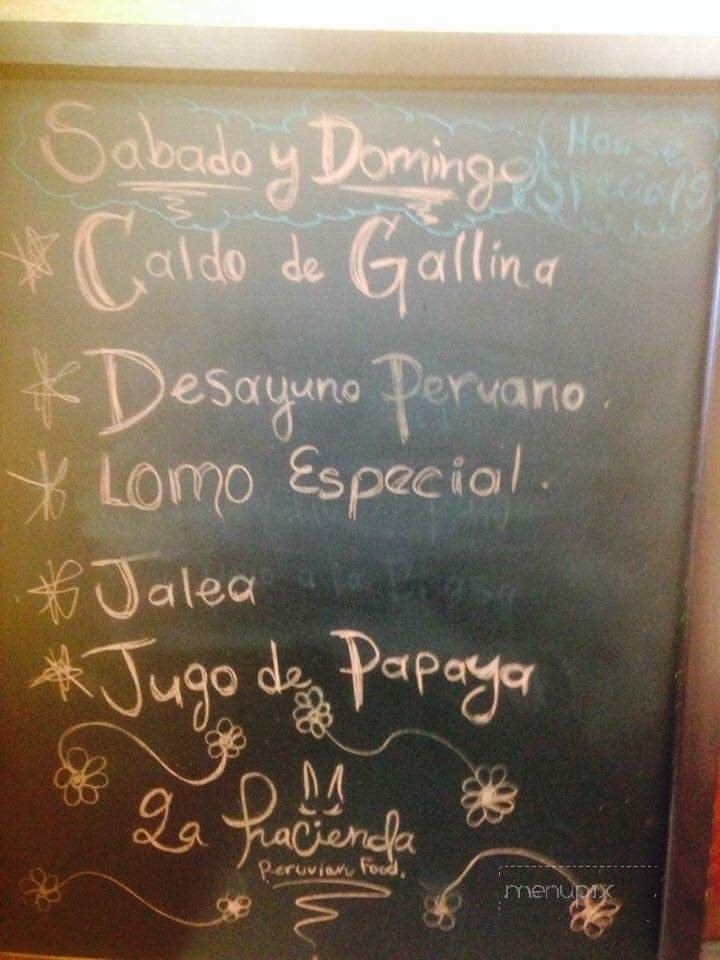 Sabado y Domingo
House
Specials
Caldo de Gallina
Desayuno Peruano.
Lomo Especial.
Jalea
Jugo de Papaya
La hacienda
Peruvian Food.
menupix